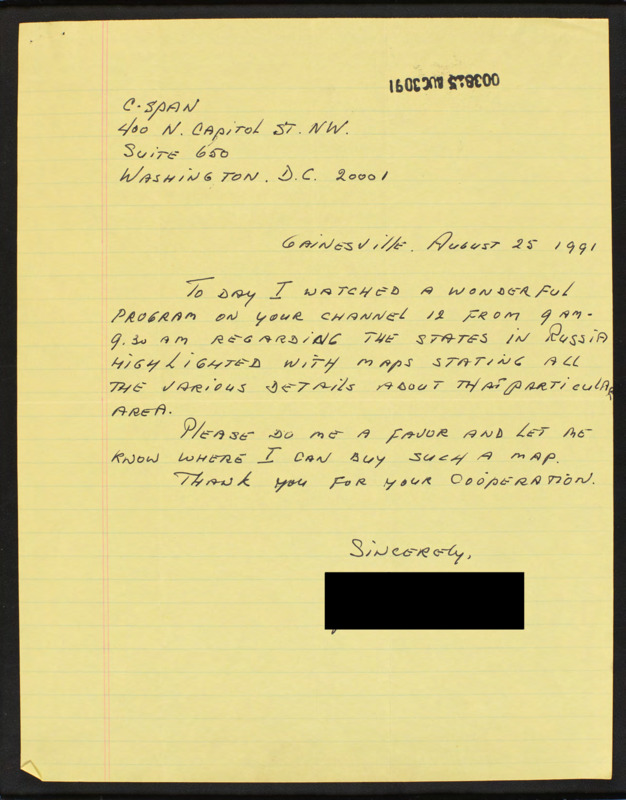 003815 AUG 30 91
C-SPAN
400 N. CAPITOL ST. NW.
SUITE 650
WASHINGTON. D.C. 20001
GAINESVILLE. AUGUST 25 1991
TO DAY I WATCHED A WONDERFUL
PROGRAM ON YOUR CHANNEL 12 FROM 9 AM-
9.30 AM REGARDING THE STATES IN RUSSIA
HIGHLIGHTED WITH MAPS STATING ALL
THE VARIOUS DETAILS ABOUT THAT PARTICULAR
AREA.
PLEASE DO ME A FAVOR AND LET ME
KNOW WHERE I CAN BUY SUCH A MAP.
THANK YOU FOR YOUR COÖPERATION.
SINCERELY,